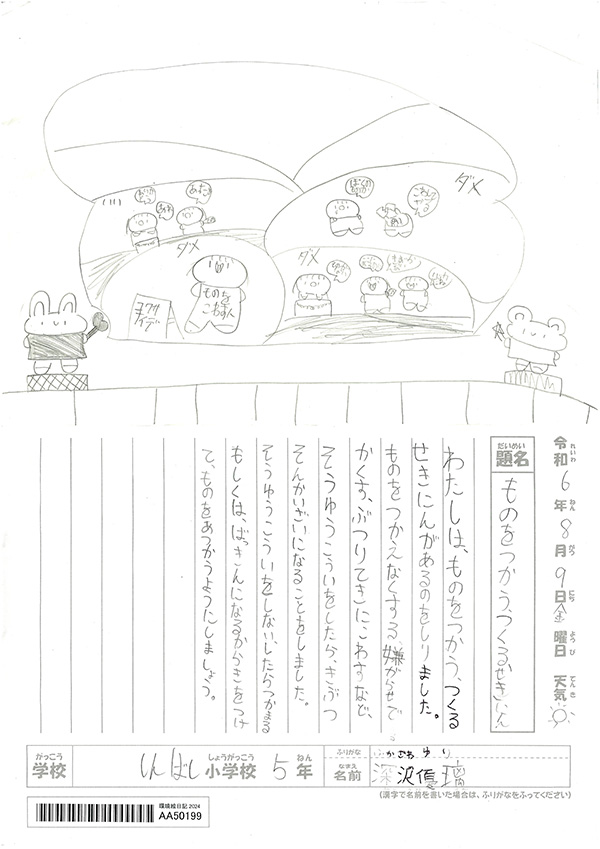 ダメ
ダメ
ダメ
ものを
こわす人
令和6年8月9日金曜日 天気
れいわ ねん がつ にち ようび てんき
だいめい
題名
ものをつかう、つくるせきにん
わたしは、ものをつかう、つくる
せきにんがあるのをしりました。
ものをつかえなくする嫌がらせで
かくす、ぶつりてきにこわすなど、
そうゆうこういをしたら、きぶつ
そんかいざいになることをしました。
そうゆうこういをしない、したらつかまる
もしくは、ばっきんになるからきをつけ
て、ものをあつかうようにしましょう。
がっこう
学校
しんばし小学校5年
しょうがっこう ねん
ふりがな
ふかさわ ゆり
なまえ
名前
深沢優璃
(漢字で名前を書いた場合は、ふりがなをふってください)
環境絵日記2024
AA50199